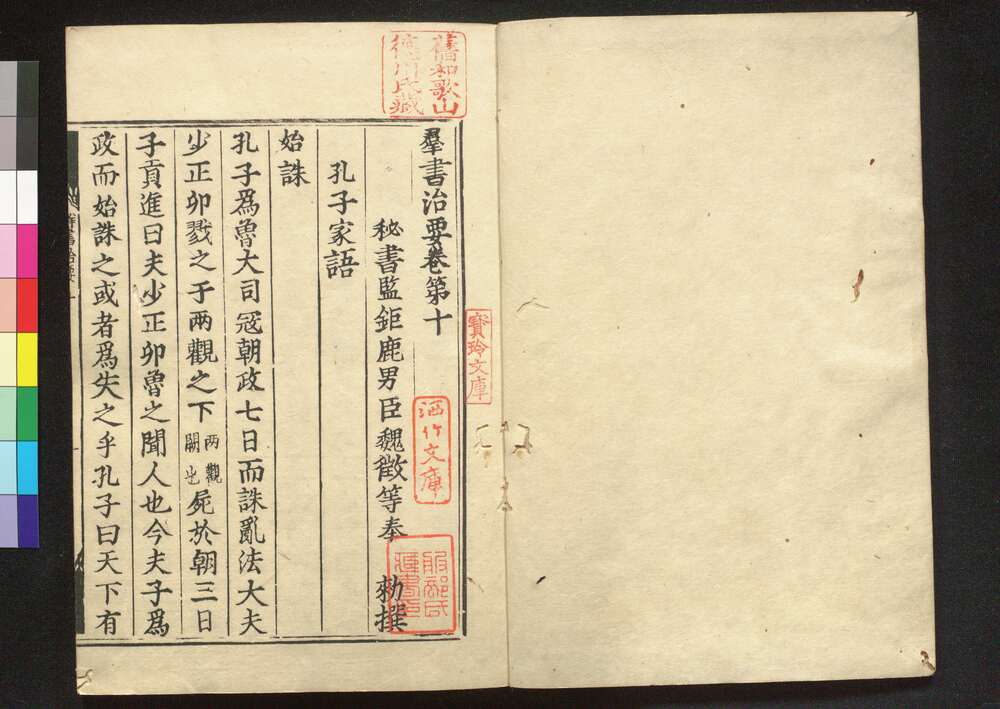 舊和歌山
德川氏藏
羣書治要卷第十
秘書監鉅鹿男臣魏徵等奉 勅撰
孔子家語
始誅
孔子爲魯大司冦朝政七日而誅亂法大夫
少正卯戮之于兩觀之下兩觀闕也屍於朝三日
子貢進曰夫少正卯魯之聞人也今夫子爲
政而始誅之或者爲失之乎孔子曰天下有
寶玲文庫
洒竹文庫
服部氏